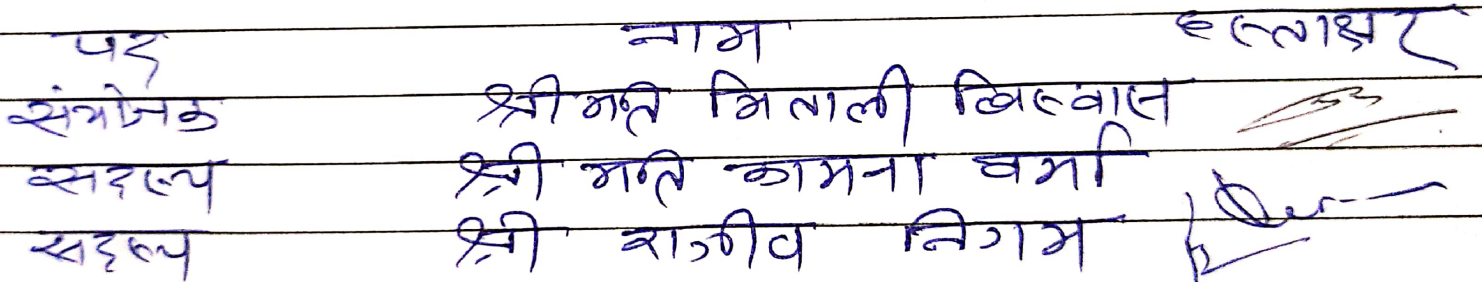 पद नाम हस्ताक्षर
संयोजक श्रीमति मिताली बिस्वास
सदस्य श्री मति कामना वर्मा
सदस्य श्री राजीव निगम